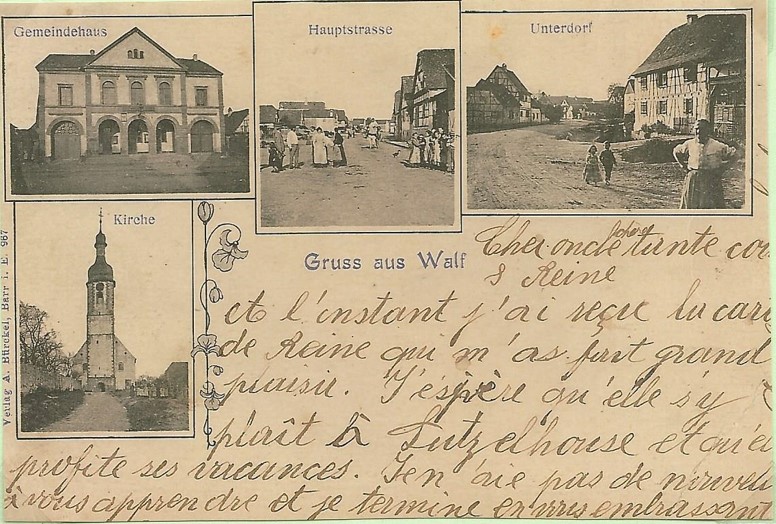 Gemeindehaus
Hauptstrasse
Unterdorf
Kirche
Gruss aus Walf
Verlag A. Bürckel, Barr i. E. 967
Cher oncle tante
& Reine
et l'instant j'ai reçu la car
de Reine qui m'as fait grand
plaisir. J'espère qu'elle s'y
plaît à Lutzelhouse et qu'e
profite ses vacances. Jen'aie pas de nouvel
à vous apprendre et je termine en vous embrassant